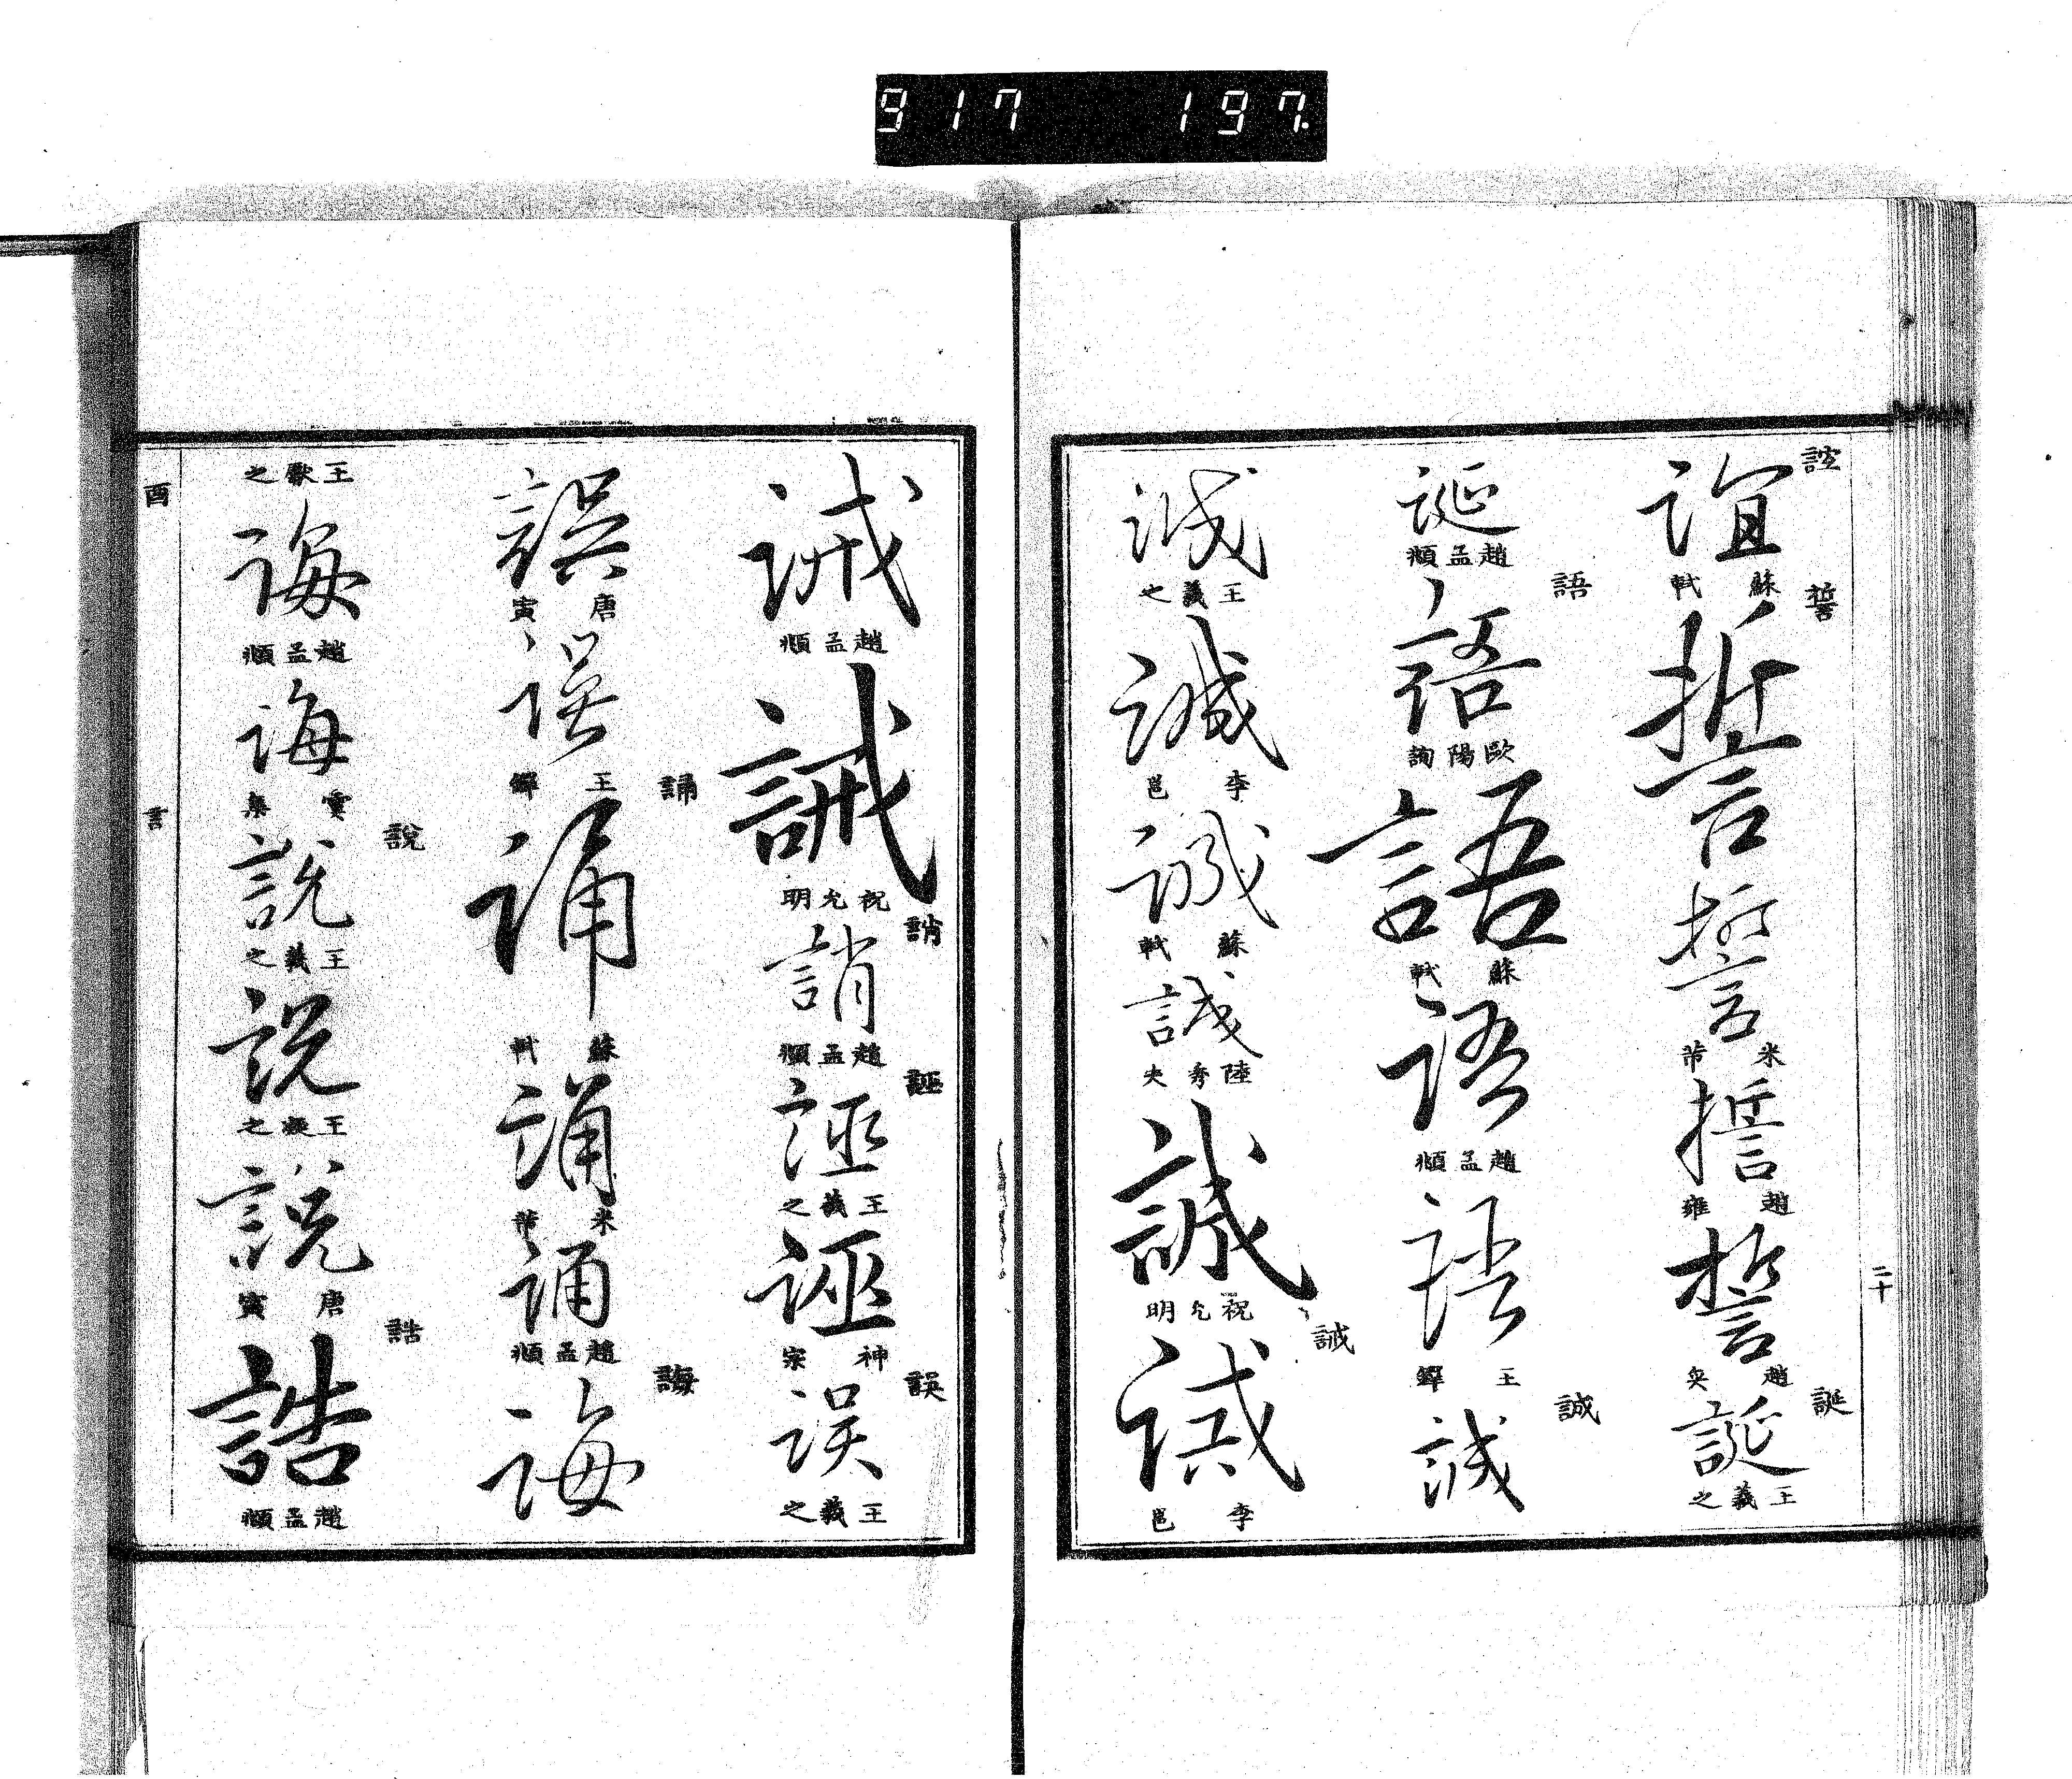 917 197.
誼
誼
蘇軾
誓
誓
誓
米芾
誓
趙雍
誓
趙奐
誕
誕
王羲之
二十
誕
趙孟頫
語
語
歐陽詢
語
蘇軾
語
趙孟頫
語
王鐸
誠
誠
誠
王羲之
誠
李邕
誠
蘇軾
誠
陸秀夫
誠
祝允明
誡
誡
李邕
誡
趙孟頫
誡
祝允明
誚
誚
趙孟頫
誣
誣
王羲之
誣
神宗
誤
誤
王羲之
誤
唐寅
誤
王鐸
誦
誦
蘇軾
誦
米芾
誦
趙孟頫
誨
誨
王獻之
誨
趙孟頫
誨
虞集
說
說
王羲之
說
王凝之
說
唐寅
誥
誥
趙孟頫
酉
言